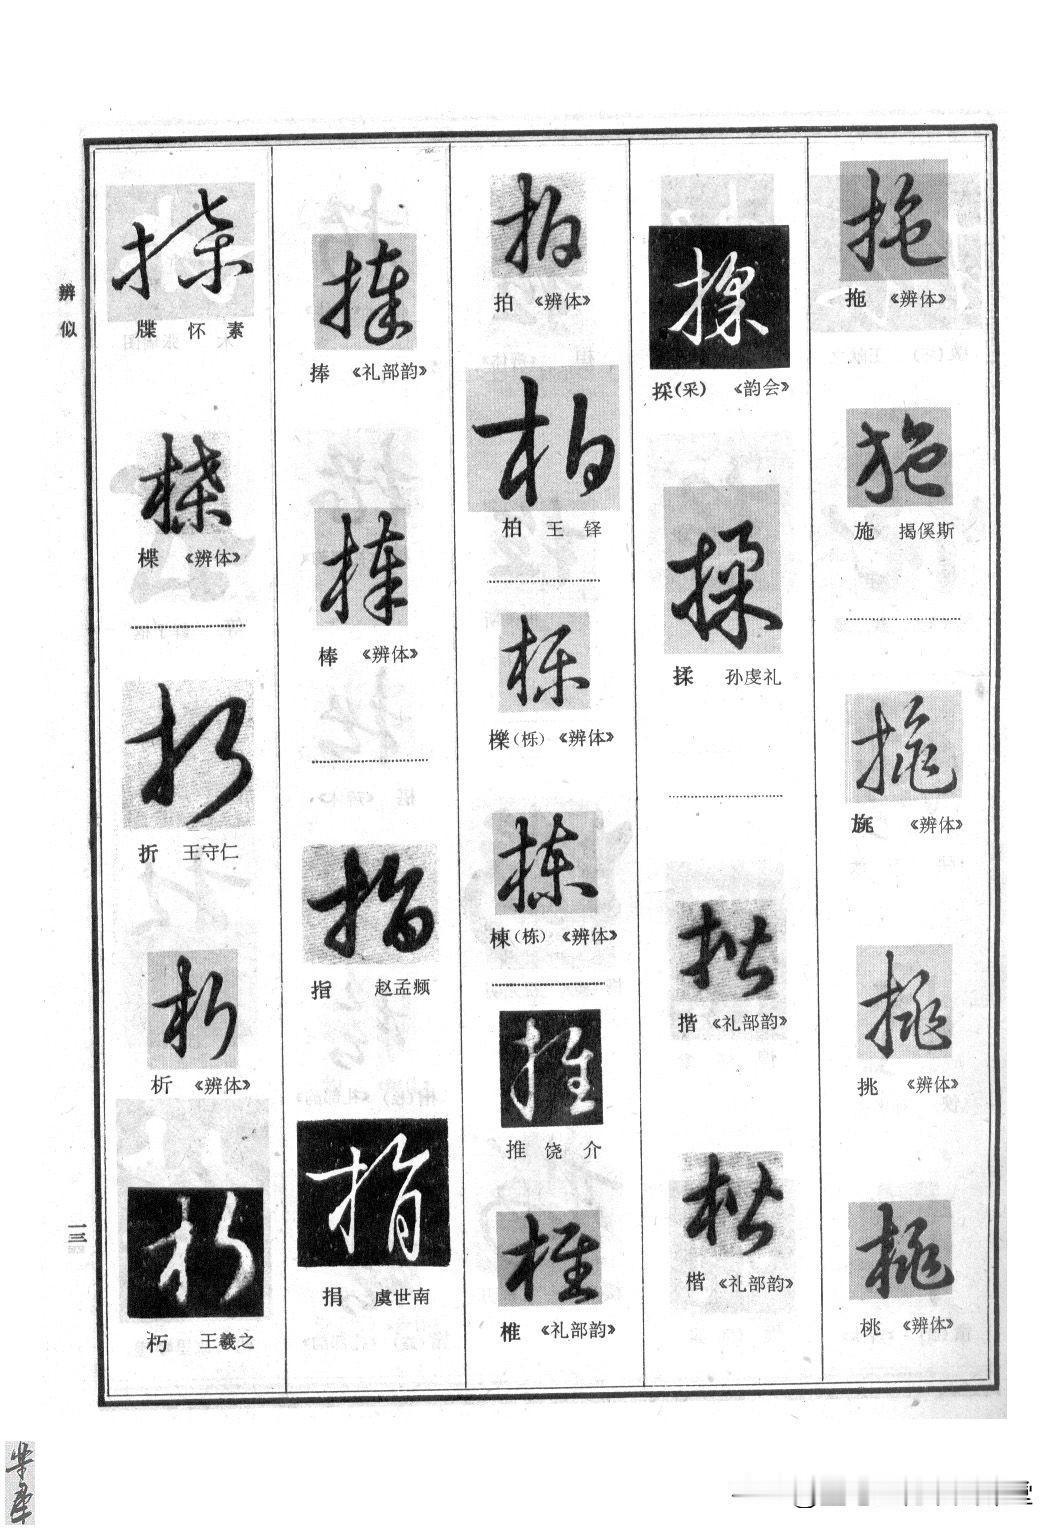 拖 《辨体》
施 揭傒斯
旐 《辨体》
挑 《辨体》
桃 《辨体》
採(采) 《韵会》
揉 孙虔礼
揩 《礼部韵》
楷 《礼部韵》
拍 《辨体》
柏 王铎
櫟(栎) 《辨体》
棟(栋) 《辨体》
推 饶介
椎 《礼部韵》
捧 《礼部韵》
棒 《辨体》
指 赵孟頫
捐 虞世南
牒 怀素
楪 《辨体》
折 王守仁
析 《辨体》
朽 王羲之
辨似
一三